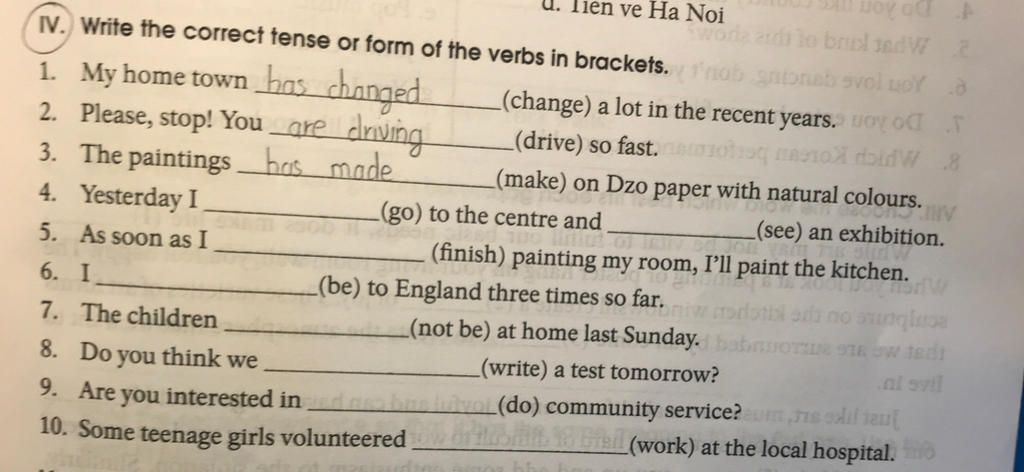 d. Tien ve Ha Noi
IV. Write the correct tense or form of the verbs in brackets.
1. My home town has changed (change) a lot in the recent years.
2. Please, stop! You are driving (drive) so fast.
3. The paintings has made (make) on Dzo paper with natural colours.
4. Yesterday I ____ (go) to the centre and ____ (see) an exhibition.
5. As soon as I ____ (finish) painting my room, I'll paint the kitchen.
6. I ____ (be) to England three times so far.
7. The children ____ (not be) at home last Sunday.
8. Do you think we ____ (write) a test tomorrow?
9. Are you interested in ____ (do) community service?
10. Some teenage girls volunteered ____ (work) at the local hospital.